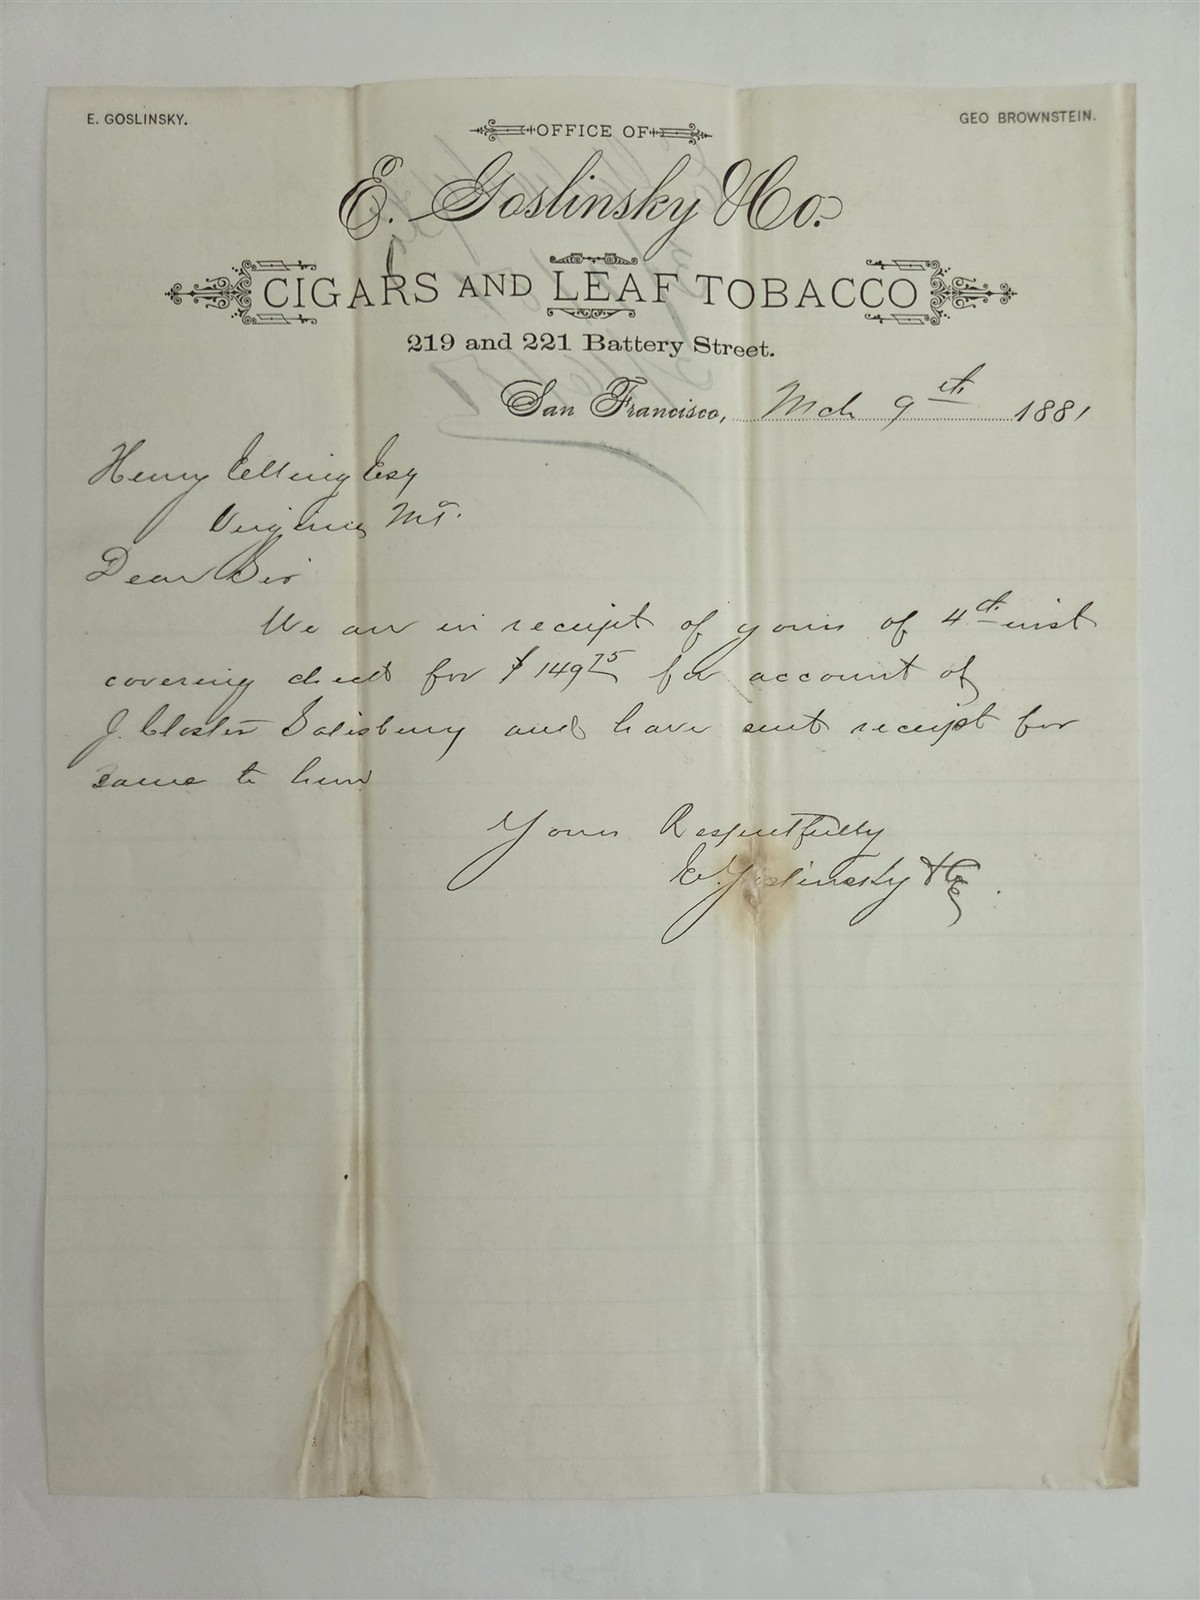 E. GOSLINSKY.
GEO BROWNSTEIN.
OFFICE OF
E. Goslinsky & Co.
CIGARS AND LEAF TOBACCO
219 and 221 Battery Street.
San Francisco, Mch 9th 1881
Henry Elling Esq
Virginia MT.
Dear Sir
We are in receipt of yours of 4th inst
covering check for $149 75 for account of
J. Closter Salisbury and have sent receipt for
same to him
Yours Respectfully
E. Goslinsky & Co.